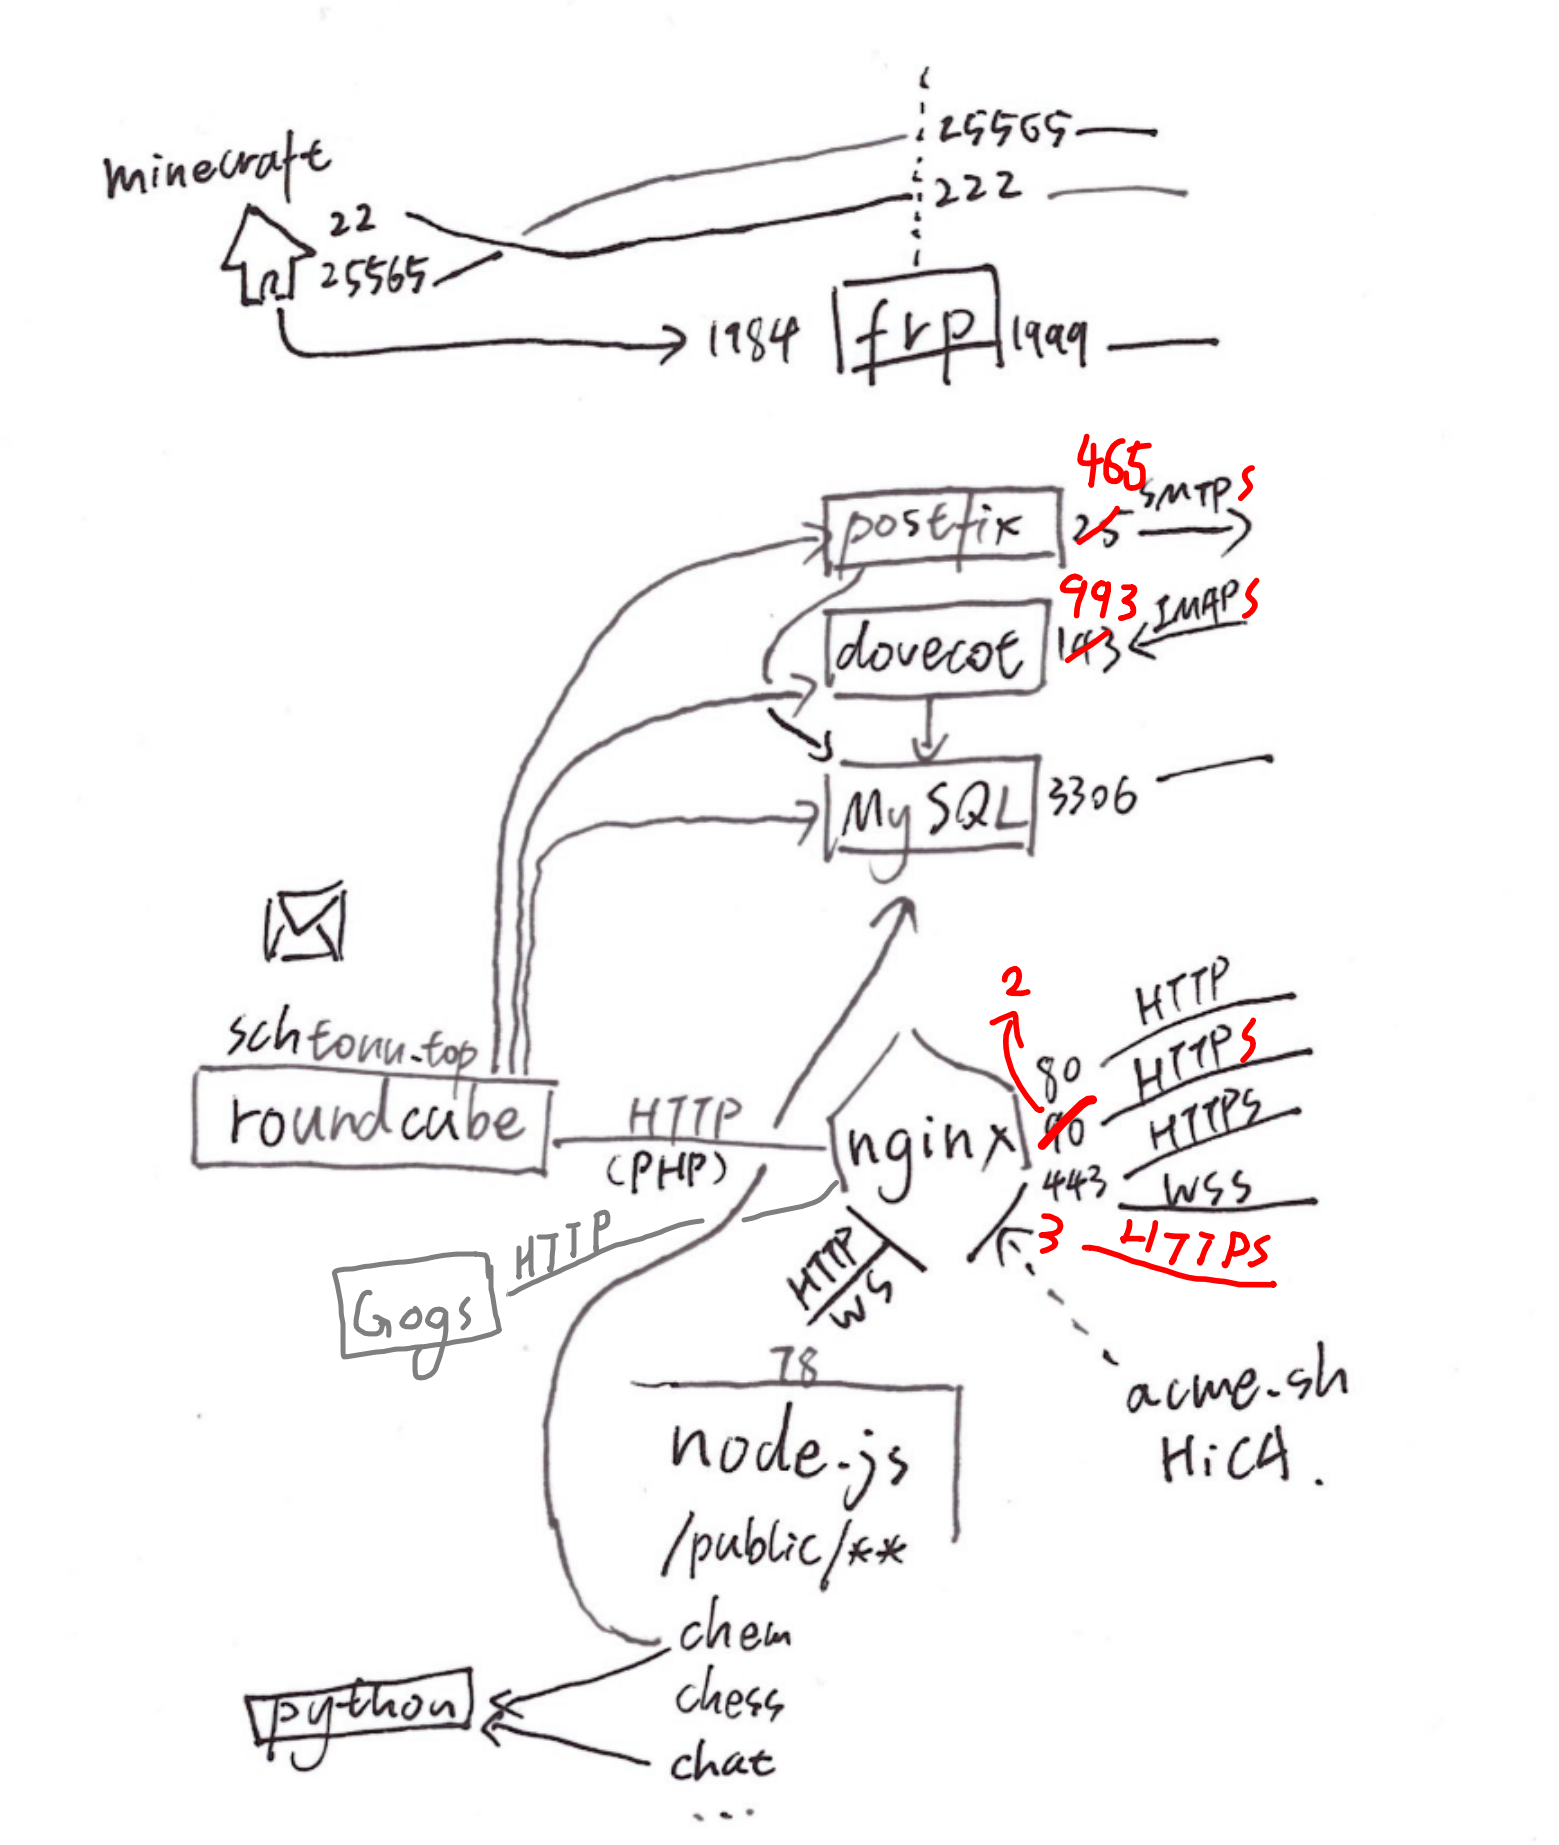 minecraft
25565
222
22
25565
1984
frp
1999
465
SMTPS
postfix
25
993
IMAPS
dovecot
143
MySQL
3306
2
HTTP
80
HTTPS
90
HTTPS
443
WSS
3 HTTPS
schtonn.top
roundcube
HTTP
(PHP)
nginx
HTTP
Gogs
HTTP
WS
acme.sh
HiCA.
78
node.js
/public/**
chem
python
chess
chat
...